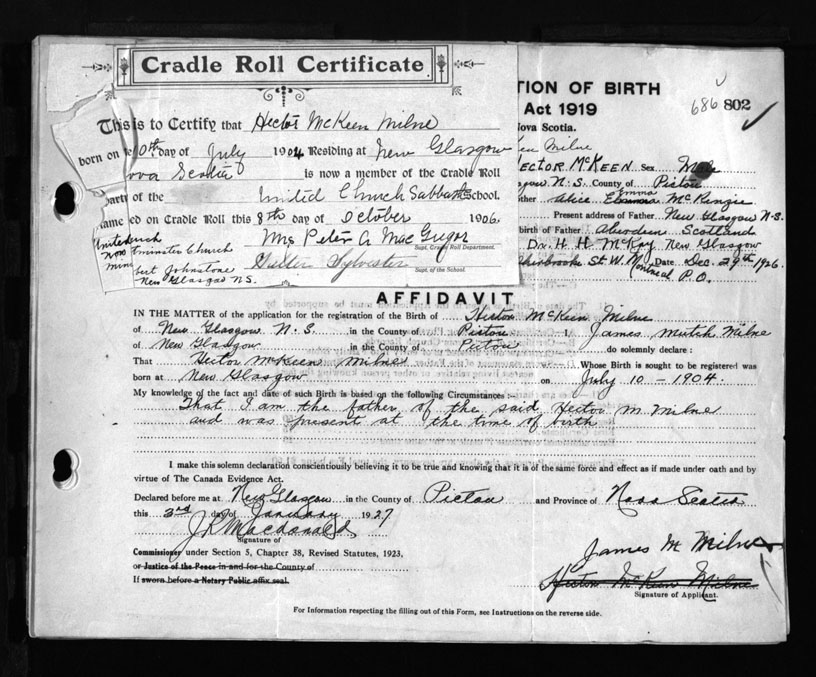 Cradle Roll Certificate
This is to Certify that Hector McKeen Milne
born on 10th day of July 1904 Residing at New Glasgow
ova Scotia is now a member of the Cradle Roll
party of the United Church Sabbath School.
ed on Cradle Roll this 8th day of October 1906.
Mrs Peter A MacGregor
Supt. Cradle Roll Department.
Sylvester
Supt. of the School.
United
now Church
bert Johnstone
New Glasgow N.S.
TION OF BIRTH
Act 1919
686 802
Nova Scotia.
Milne
HECTOR McKEEN Sex Male
N.S. County of Pictou
ther Alice Emma McKenzie
Present address of Father New Glasgow N.S.
birth of Father Aberdeen Scotland
Dr. H. H. McKay New Glasgow
Sherbrooke St. W. Montreal P.Q. Date Dec. 29th 1926.
AFFIDAVIT
IN THE MATTER of the application for the registration of the Birth of Hector McKeen Milne
of New Glasgow N.S. in the County of Pictou I, James Mutch Milne
of New Glasgow in the County of Pictou do solemnly declare :
That Hector McKeen Milne Whose Birth is sought to be registered was
born at New Glasgow on July 10 - 1904.
My knowledge of the fact and date of such Birth is based on the following Circumstances :-
That I am the father of the said Hector M Milne
and was present at the time of birth
I make this solemn declaration conscientiously believing it to be true and knowing that it is of the same force and effect as if made under oath and by
virtue of The Canada Evidence Act.
Declared before me at New Glasgow in the County of Pictou and Province of Nova Scotia
this 3rd day of January 1927
Macdonald
Signature of
Commissioner under Section 5, Chapter 38, Revised Statutes, 1923,
or Justice of the Peace in and for the County of
If sworn before a Notary Public affix seal.
James M Milne
Hector McKeen Milne
Signature of Applicant.
For Information respecting the filling out of this Form, see Instructions on the reverse side.